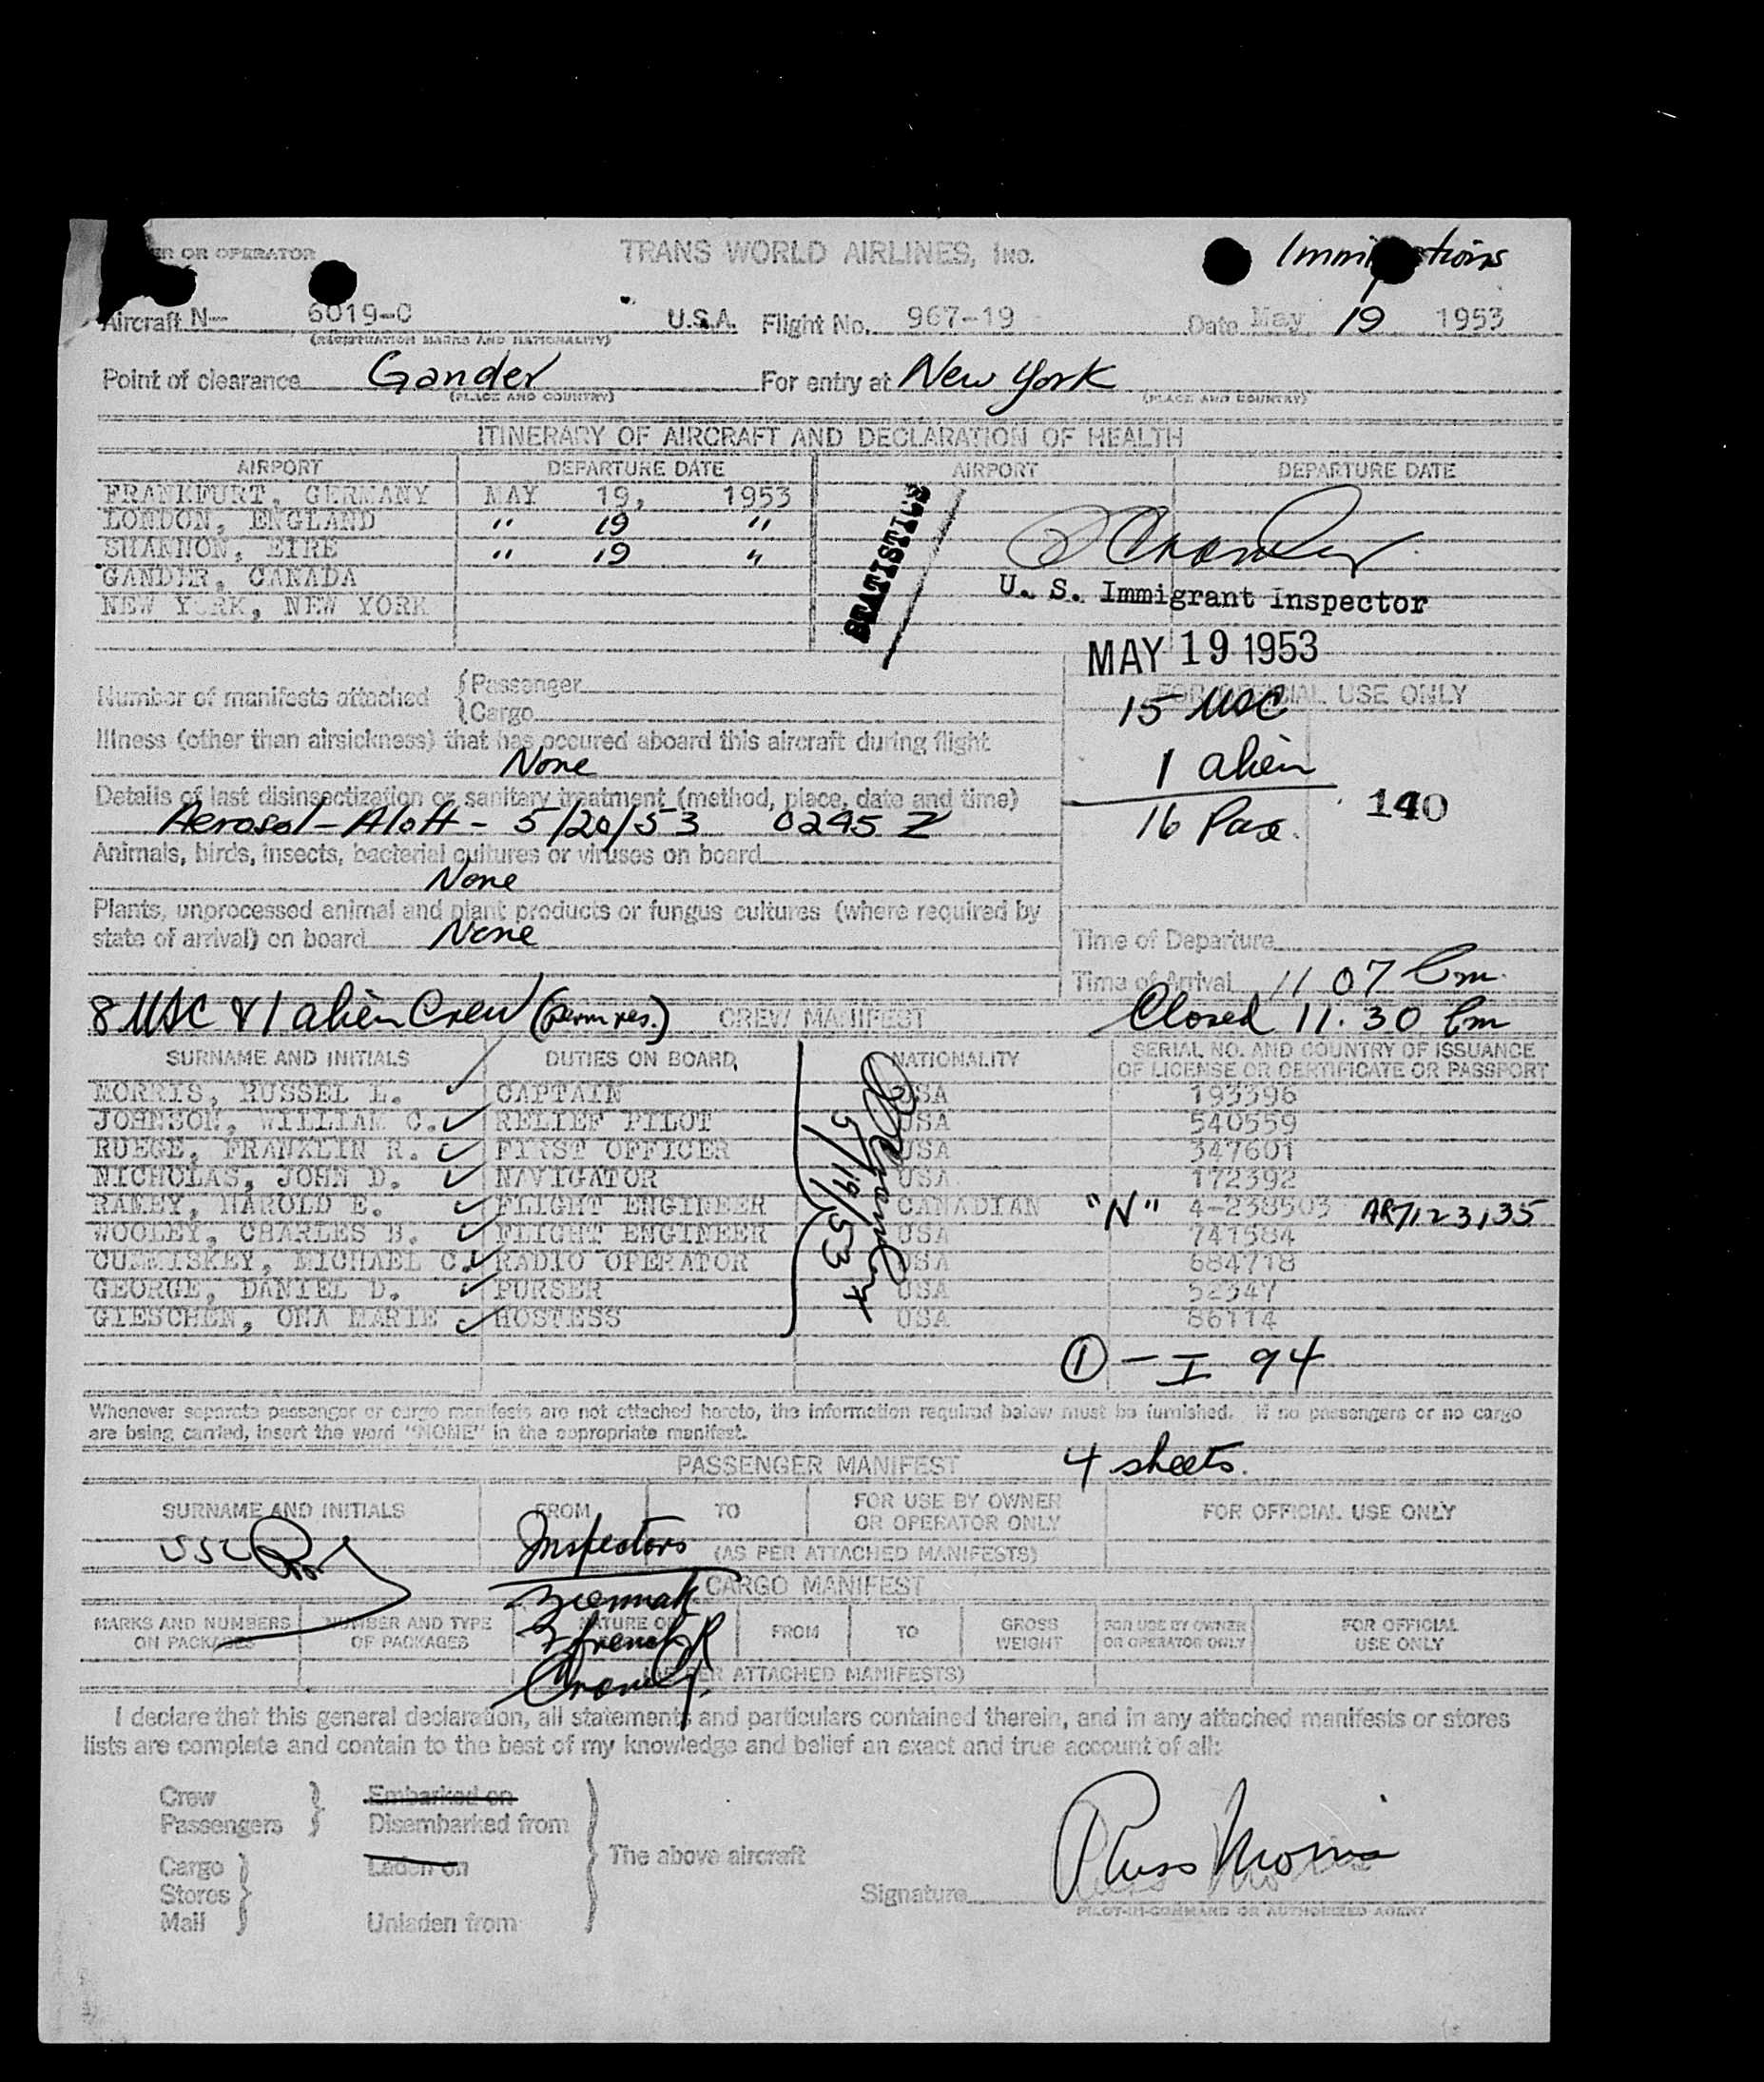 OR OPERATOR TRANS WORLD AIRLINES, INC. Immigrations
Aircraft N-- 6019-C U.S.A. Flight No. 967-19 Date May 19 1953
(REGISTRATION MARKS AND NATIONALITY)
Point of clearance Gander For entry at New York
(PLACE AND COUNTRY) (PLACE AND COUNTRY)
ITINERARY OF AIRCRAFT AND DECLARATION OF HEALTH
AIRPORT DEPARTURE DATE AIRPORT DEPARTURE DATE
FRANKFURT, GERMANY MAY 19, 1953
LONDON, ENGLAND " 19 "
SHANNON, EIRE " 19 "
GANDER, CANADA
NEW YORK, NEW YORK
STATISTICS
U. S. Immigrant Inspector
MAY 19 1953
Number of manifests attached { Passenger
Cargo
FOR OFFICIAL USE ONLY
15 USC
1 alien
16 Pax. 140
Illness (other than airsickness) that has occured aboard this aircraft during flight
None
Details of last disinsectization or sanitary treatment (method, place, date and time)
Aerosol - Aloft - 5/20/53 0245 Z
Animals, birds, insects, bacterial cultures or viruses on board
None
Plants, unprocessed animal and plant products or fungus cultures (where required by
state of arrival) on board None
Time of Departure
Time of Arrival 11 07 Pm
8 USC & 1 alien Crew (perm res.) CREW MANIFEST Closed 11.30 Pm
SURNAME AND INITIALS DUTIES ON BOARD NATIONALITY SERIAL NO. AND COUNTRY OF ISSUANCE
OF LICENSE OR CERTIFICATE OR PASSPORT
MORRIS, RUSSEL L. CAPTAIN USA 193396
JOHNSON, WILLIAM C. RELIEF PILOT USA 540559
RUEGE, FRANKLIN R. FIRST OFFICER USA 347601
NICHOLAS, JOHN D. NAVIGATOR USA 172392
RAMEY, HAROLD E. FLIGHT ENGINEER CANADIAN "N" 4-238503 AR7123135
WOOLEY, CHARLES H. FLIGHT ENGINEER USA 741584
CUMMISKEY, MICHAEL C. RADIO OPERATOR USA 684718
GEORGE, DANIEL D. PURSER USA 52347
GIESCHEN, ONA MARIE HOSTESS USA 86114
5/19/53
① - I 94
Whenever separate passenger or cargo manifests are not attached hereto, the information required below must be furnished. If no passengers or no cargo
are being carried, insert the word "NONE" in the appropriate manifest.
PASSENGER MANIFEST 4 sheets.
SURNAME AND INITIALS FROM TO FOR USE BY OWNER
OR OPERATOR ONLY FOR OFFICIAL USE ONLY
Inspectors (AS PER ATTACHED MANIFESTS)
CARGO MANIFEST
MARKS AND NUMBERS
ON PACKAGES NUMBER AND TYPE
OF PACKAGES NATURE OF FROM TO GROSS
WEIGHT FOR USE BY OWNER
OR OPERATOR ONLY FOR OFFICIAL
USE ONLY
(AS PER ATTACHED MANIFESTS)
I declare that this general declaration, all statements and particulars contained therein, and in any attached manifests or stores
lists are complete and contain to the best of my knowledge and belief an exact and true account of all:
Crew Embarked on
Passengers Disembarked from
The above aircraft
Cargo Laden on
Stores
Mail Unladen from
Signature Russ Morris
PILOT-IN-COMMAND OR AUTHORIZED AGENT